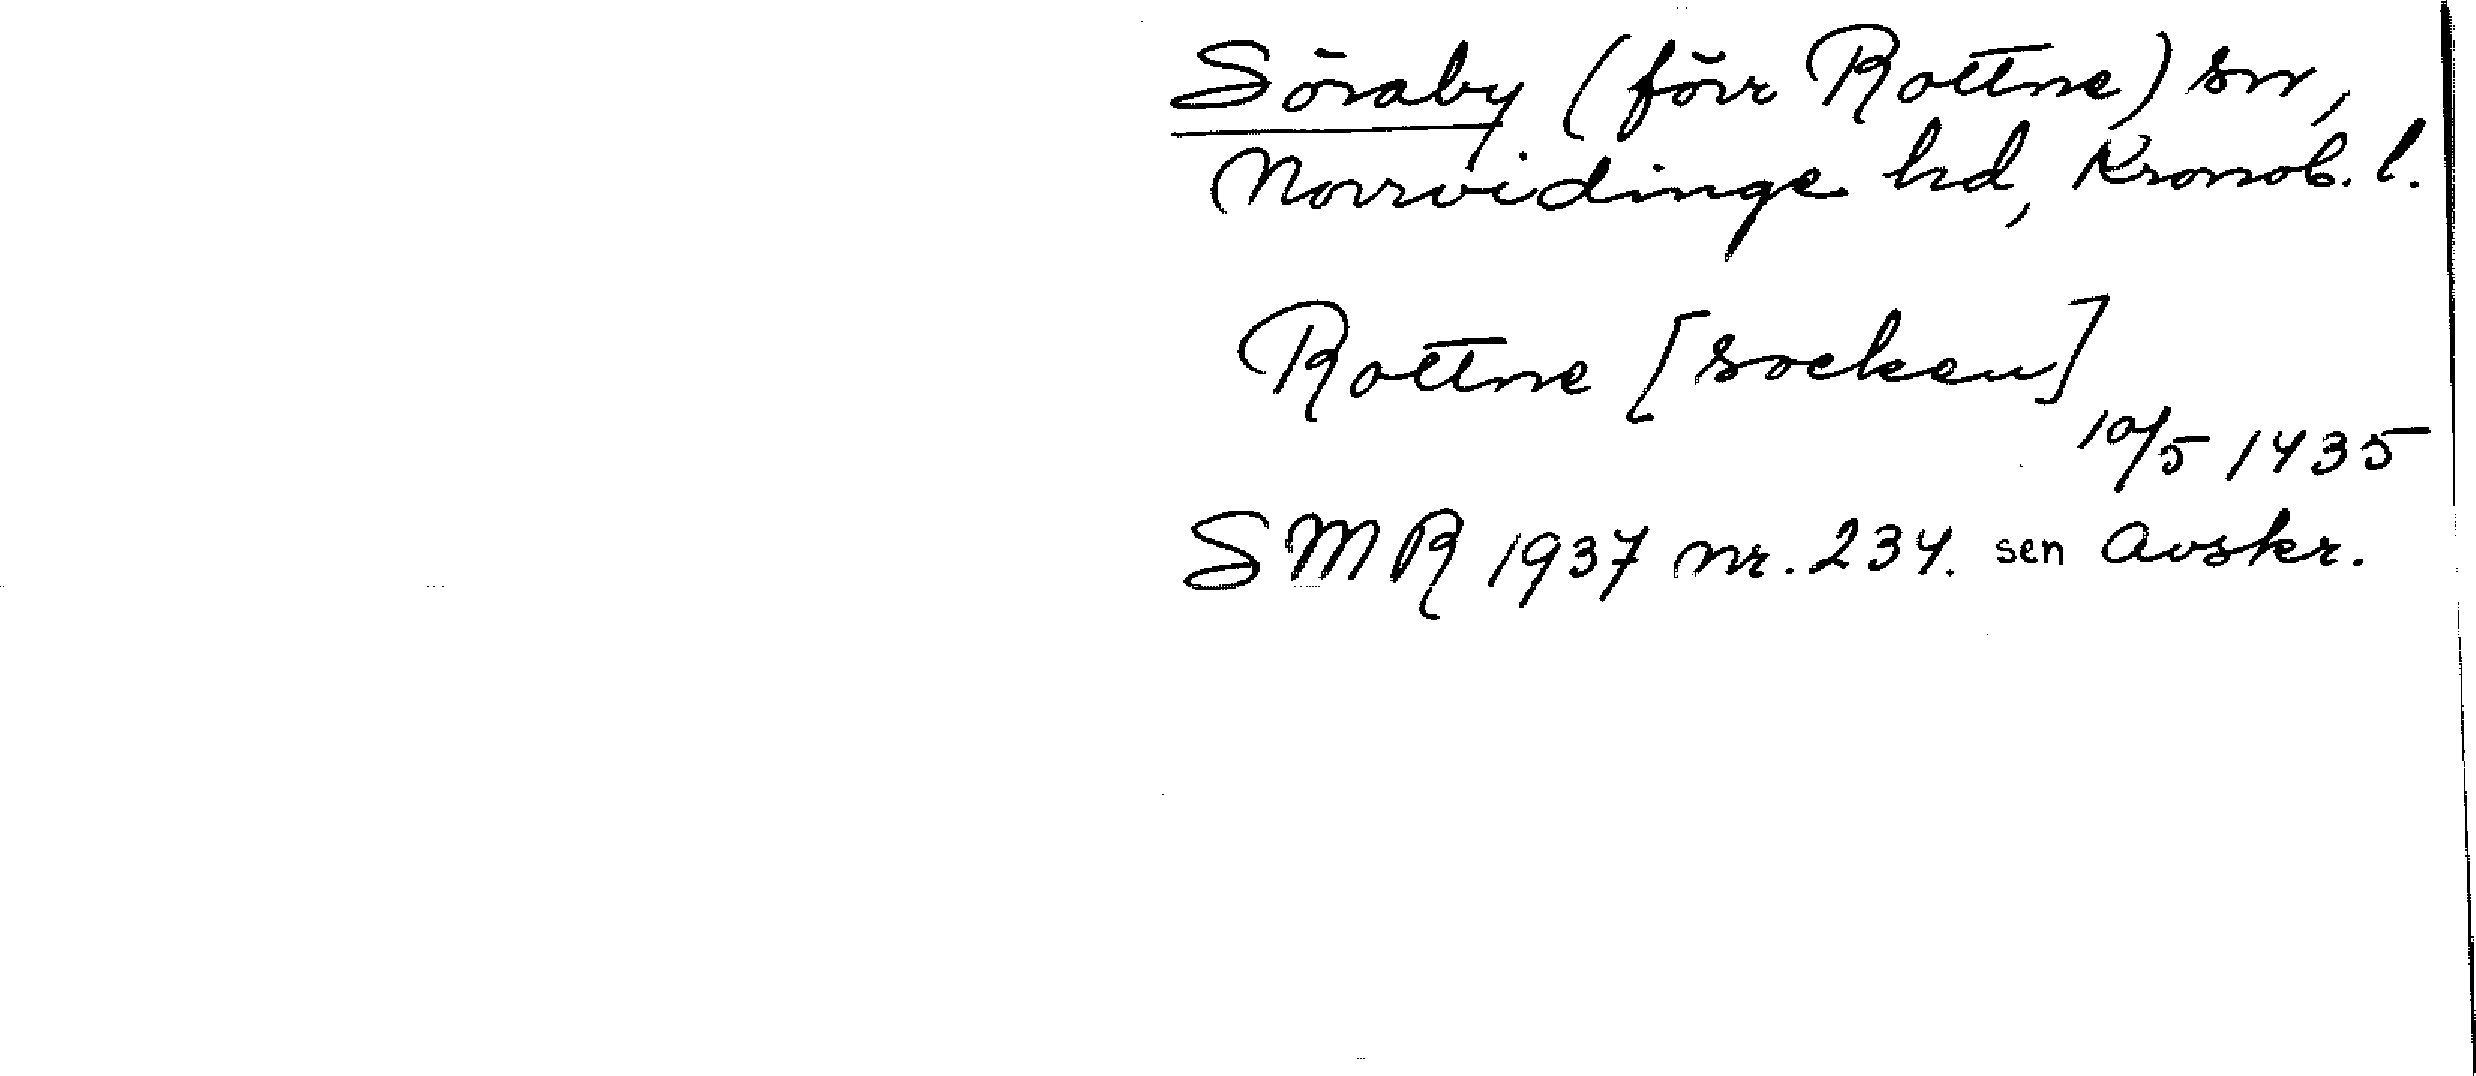 Söraby (förr Rottne) sn,
Norrvidinge hd, Kronob. l.
Rottne [socken]
10/5 1435
SMR 1937 nr. 234. sen avskr.